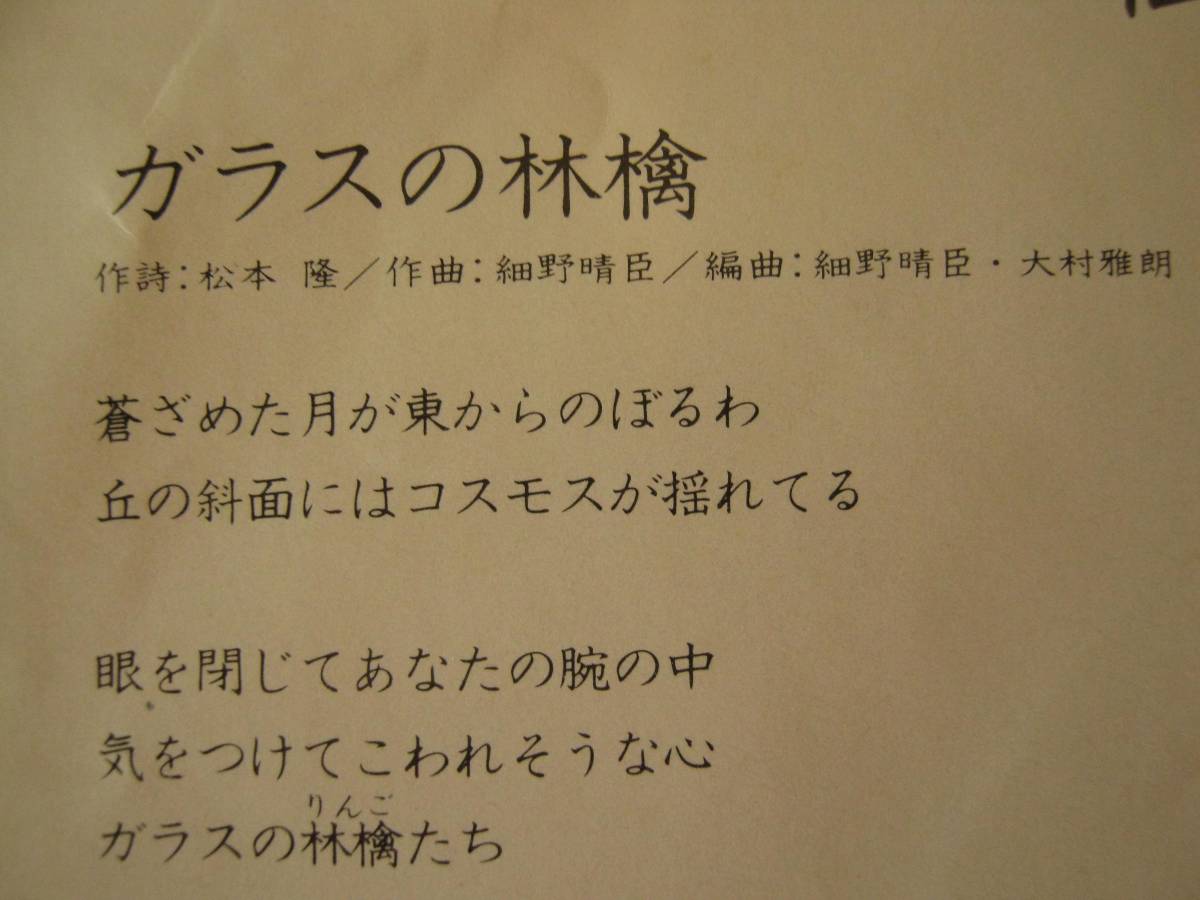 ガラスの林檎
作詩:松本 隆／作曲:細野晴臣／編曲:細野晴臣・大村雅朗
蒼ざめた月が東からのぼるわ
丘の斜面にはコスモスが揺れてる
眼を閉じてあなたの腕の中
気をつけてこわれそうな心
りんご
ガラスの林檎たち